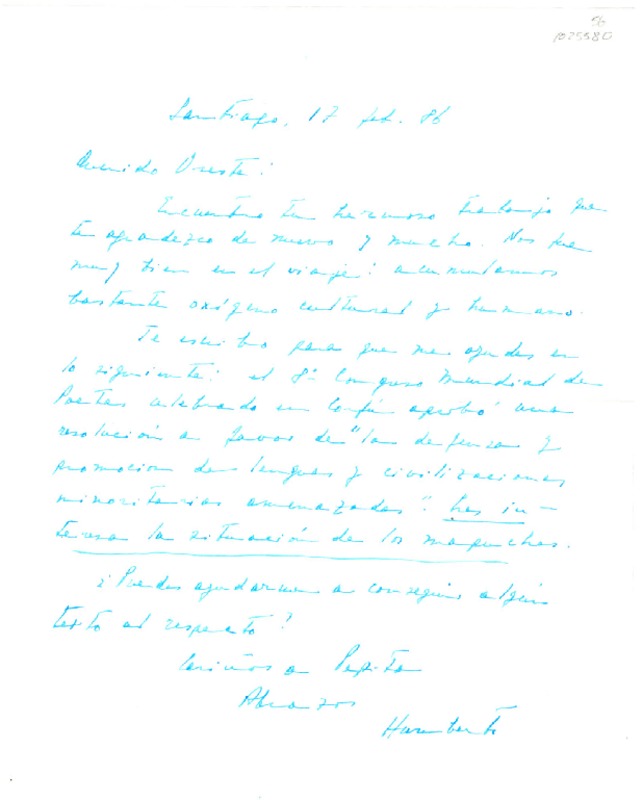 56
1025580
Santiago, 17 feb. 86
Querido Oreste:
Encuentro tu hermoso trabajo que
te agradezco de nuevo y mucho. Nos fue
muy bien en el viaje: acumulamos
bastante oxígeno cultural y humano.
Te escribo para que me ayudes en
lo siguiente: el 8º Congreso Mundial de
Poetas celebrado en Corfú aprobó una
resolución a favor de "la defensa y
promoción de lenguas y civilizaciones
minoritarias amenazadas". Les in-
teresa la situación de los mapuches.
¿Puedes ayudarme a conseguir algún
texto al respecto?
Cariños a Pepita
Abrazos
Humberto